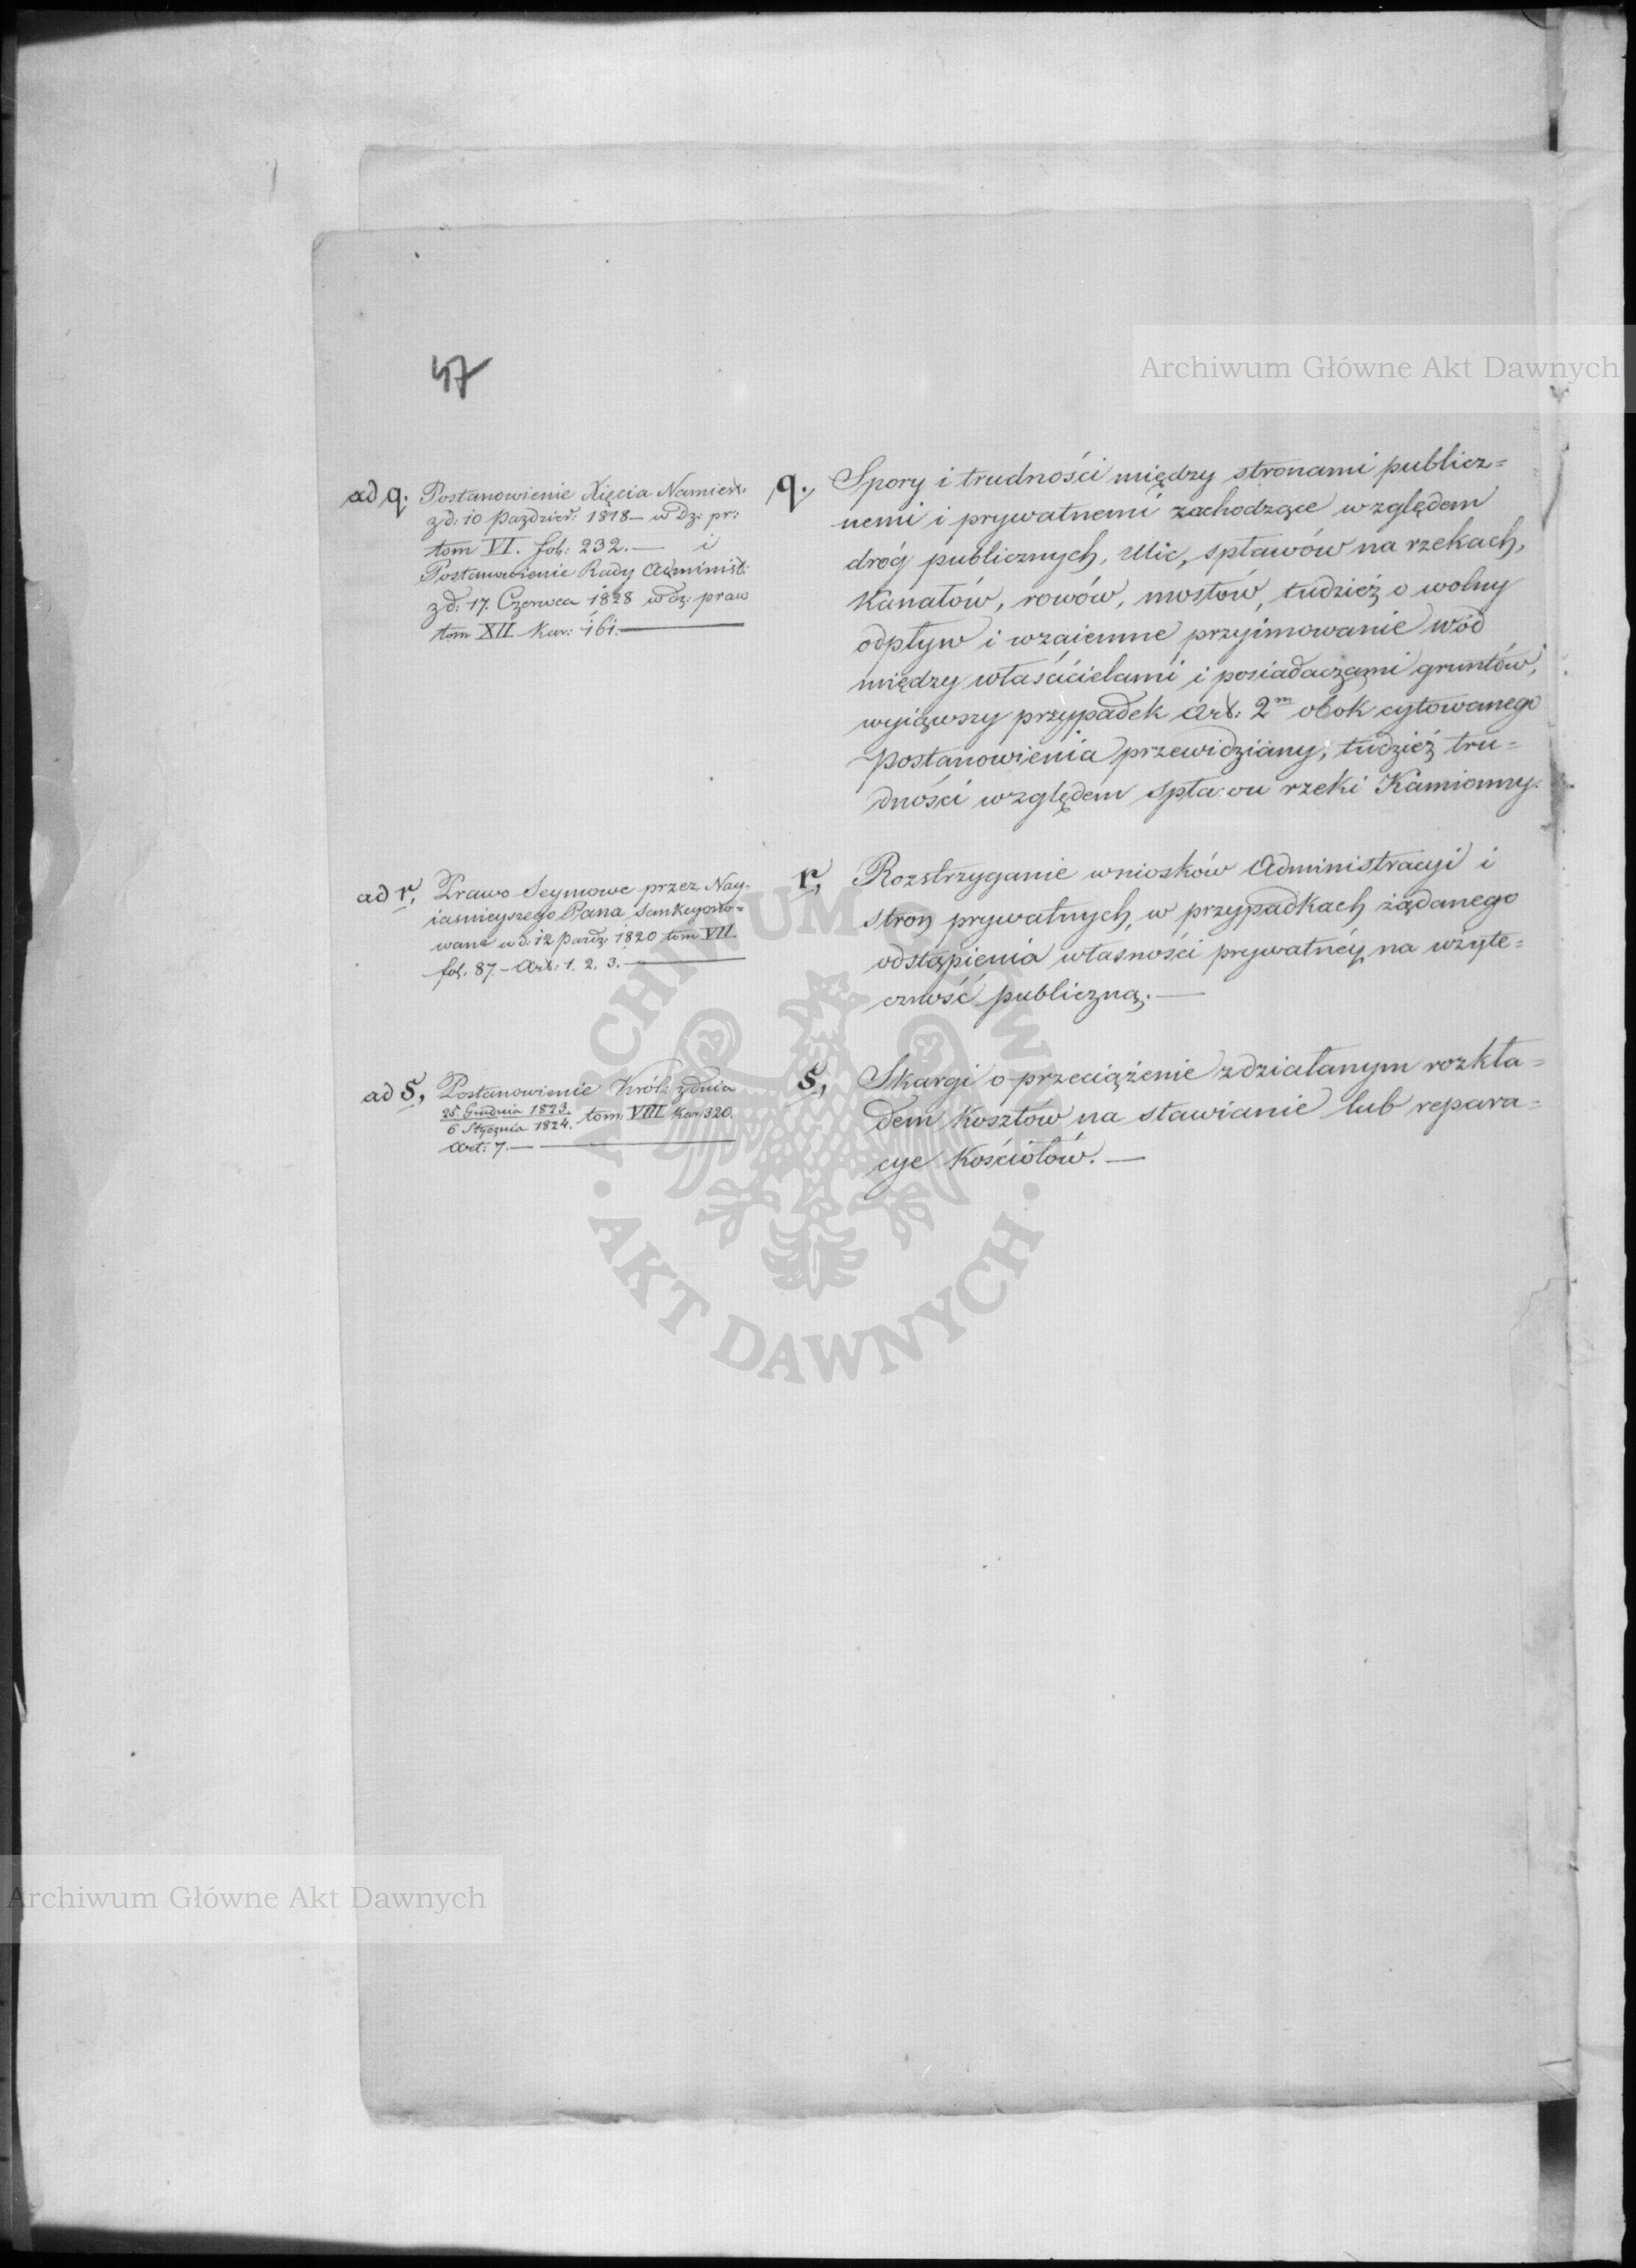 47
Archiwum Główne Akt Dawnych
ad q. Postanowienie Xięcia Namiest.
z d: 10 Paździer: 1818 — w Dz: pr:
tom VI. fol: 232. — i
Postanowienie Rady Administ:
z d: 17. Czerwca 1828 w dz: praw
tom XII kar: 161. —
q., Spory i trudności między stronami publicz=
nemi i prywatnemi zachodzące względem
dróg publicznych, ulic, spławów na rzekach,
kanałów, rowów, mostów, tudzież o wolny
odpływ i wzaiemne przyimowanie wód
między właścicielami i posiadaczami gruntów,
wyiąwszy przypadek Art: 2m obok cytowanego
postanowienia przewidziany; tudzież tru=
dności względem spławu rzeki Kamionny.
ad r, Prawo Seymowe przez Nay-
iaśnieyszego Pana sankcyono=
wane w d: 12 Paźdz: 1820 tom VII.
fol. 87. — Art: 1. 2. 3. —
r, Rozstrzyganie wniosków Administracyi i
stron prywatnych, w przypadkach żądanego
odstąpienia własności prywatnéy na użyte=
czność publiczną. —
ad s, Postanowienie Król: z dnia
25 Grudnia 1823.
6 Stycznia 1824. tom VIII kar: 320.
Art: 7. —
s, Skargi o przeciążenie zdziałanym rozkła=
dem kosztów na stawianie lub repara=
cye kościołów. —
ARCHIWUM GŁÓWNE
· AKT DAWNYCH ·
Archiwum Główne Akt Dawnych